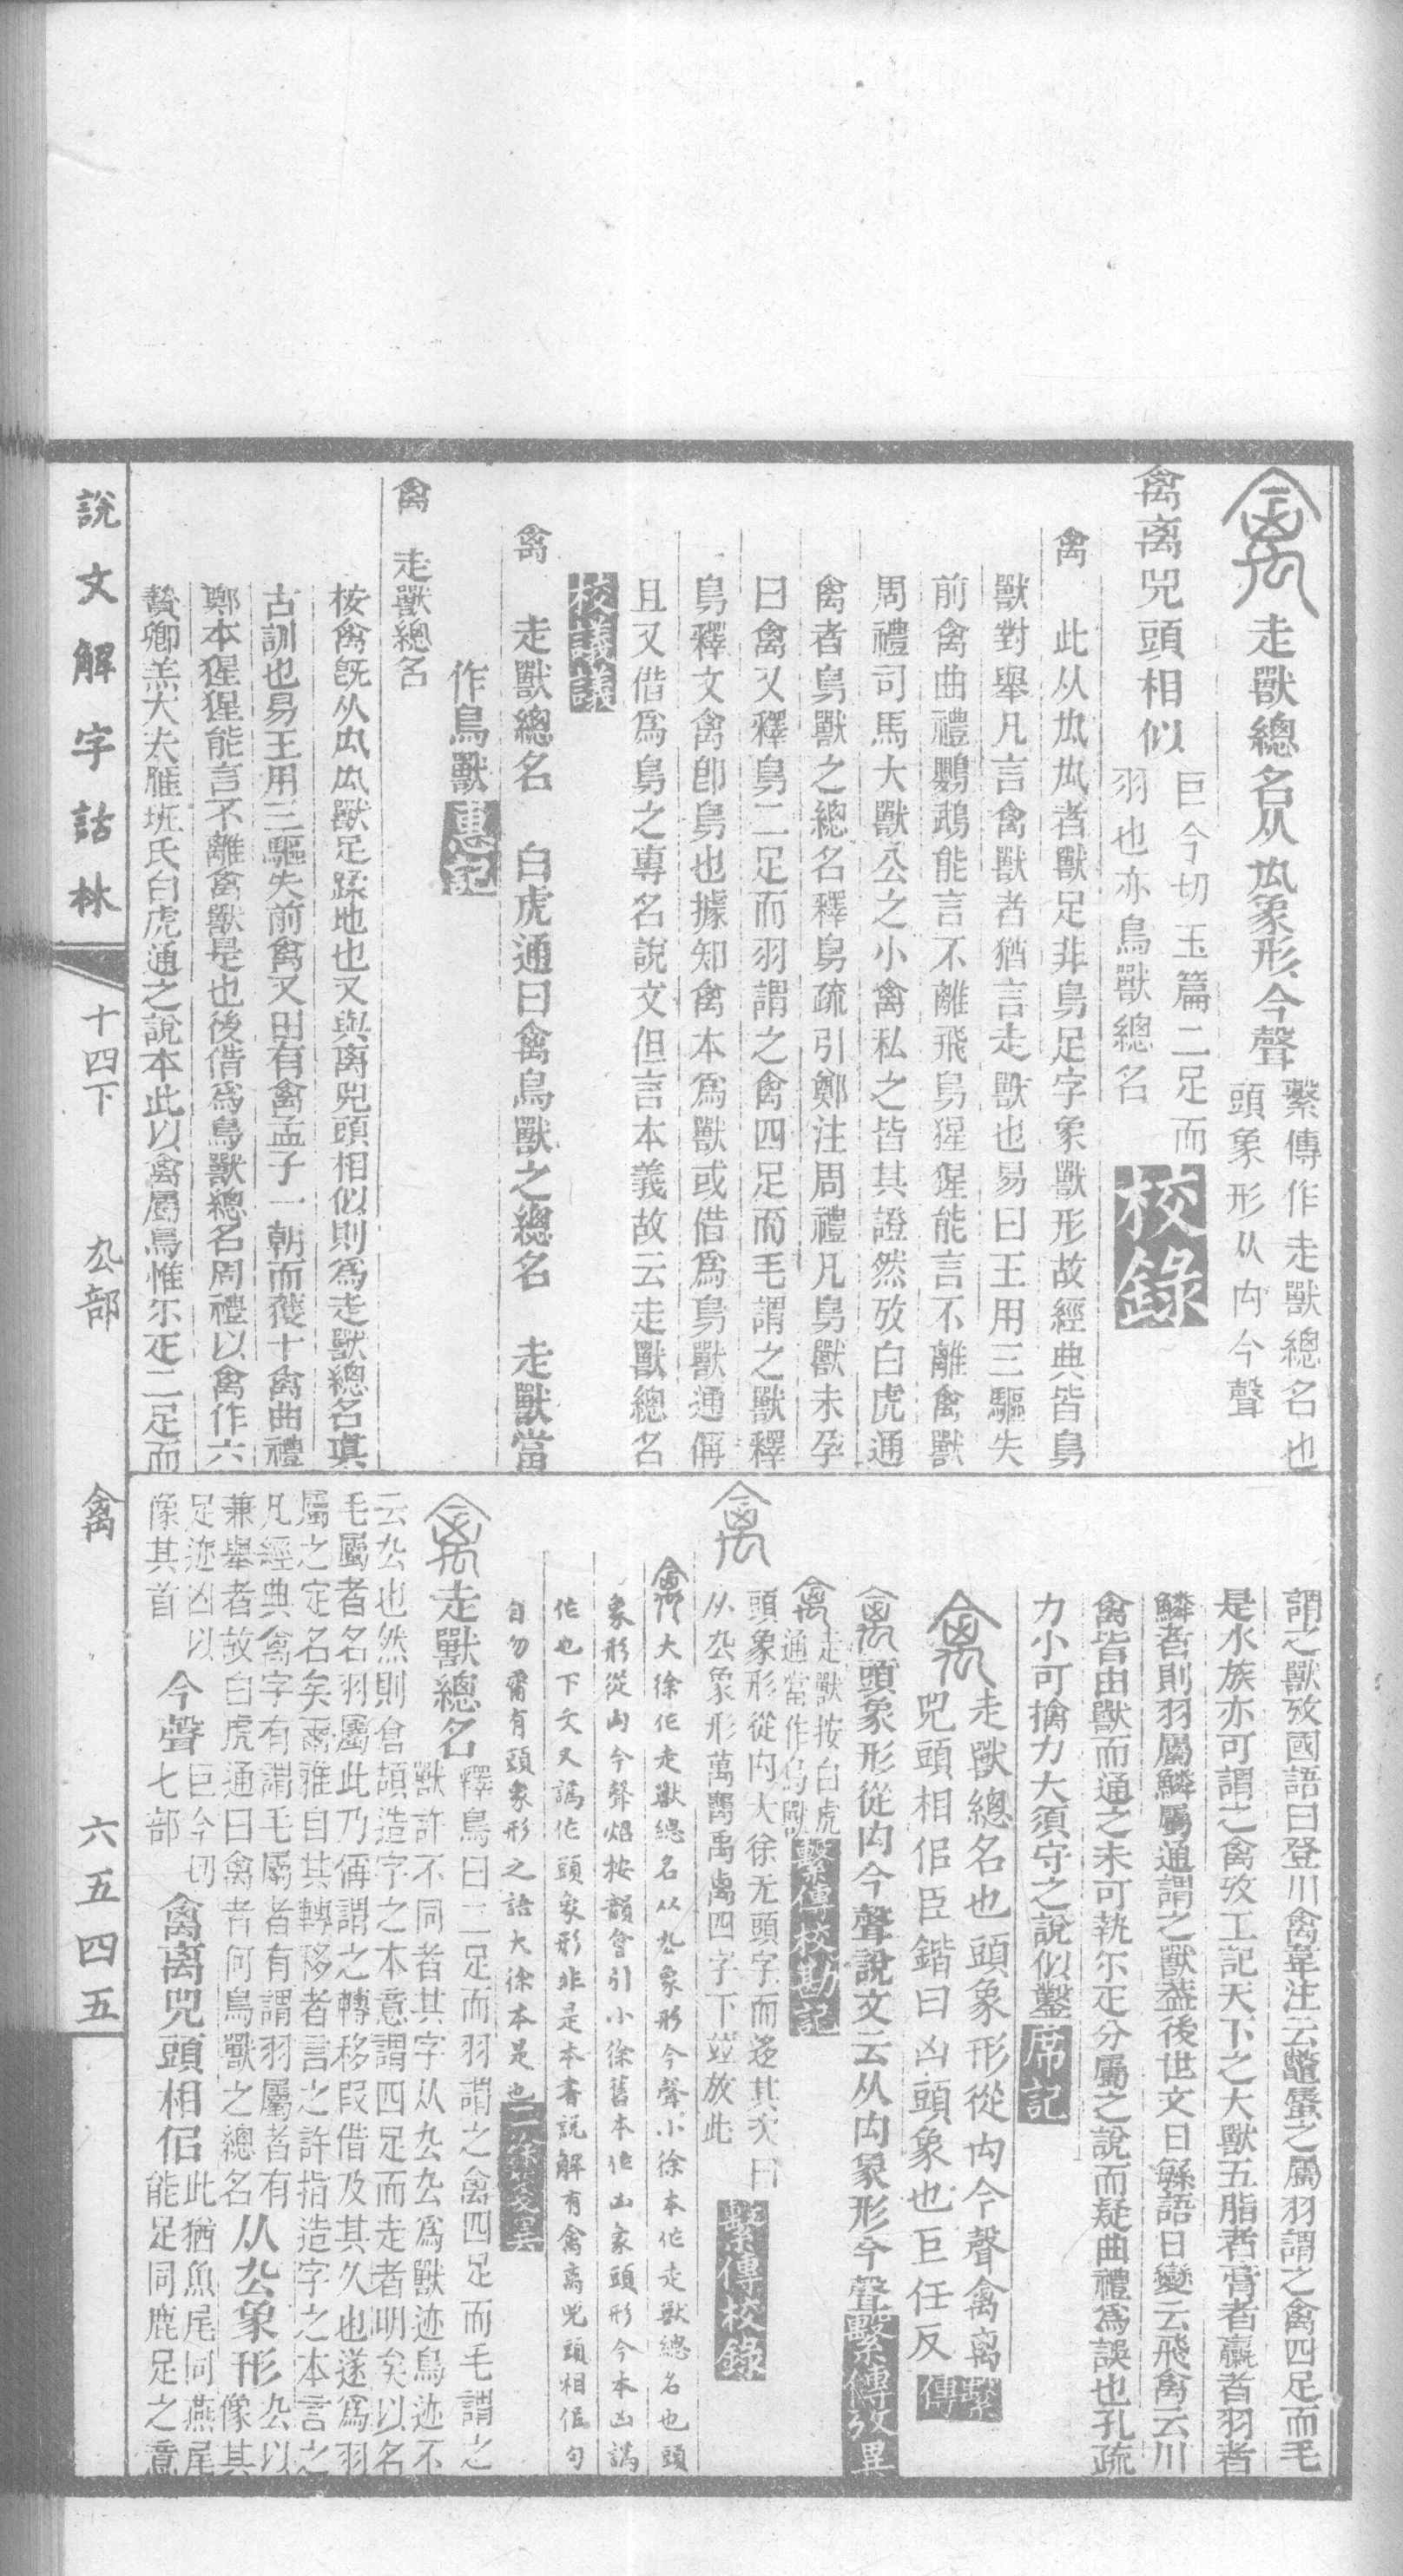 禽走獸總名从厹象形今聲
繫傳作走獸總名也
頭象形从禸今聲
禽离兕頭相似
巨今切玉篇二足而
羽也亦鳥獸總名
校錄
禽　此从厹厹者獸足非鳥足字象獸形故經典皆鳥
獸對舉凡言禽獸者猶言走獸也易曰王用三驅失
前禽曲禮鸚鵡能言不離飛鳥猩猩能言不離禽獸
周禮司馬大獸公之小禽私之皆其證然攷白虎通
禽者鳥獸之總名釋鳥疏引鄭注周禮凡鳥獸未孕
曰禽又釋鳥二足而羽謂之禽四足而毛謂之獸釋
鳥釋文禽卽鳥也據知禽本爲獸或借爲鳥獸通偁
且又借爲鳥之專名說文但言本義故云走獸總名
校議議
禽　走獸總名　白虎通曰禽鳥獸之總名　走獸當
作鳥獸惠記
禽　走獸總名
按禽旣从厹厹獸足蹂地也又與离兕頭相似則爲走獸總名眞
古訓也易王用三驅失前禽又田有禽孟子一朝而獲十禽曲禮
鄭本猩猩能言不離禽獸是也後借爲鳥獸總名周禮以禽作六
贄卿羔大夫雁班氏白虎通之說本此以禽屬鳥惟尒疋二足而
謂之獸攷國語曰登川禽韋注云鼈蜃之屬羽謂之禽四足而毛
是水族亦可謂之禽攷工記天下之大獸五脂者膏者臝者羽者
鱗者則羽屬鱗屬通謂之獸葢後世文日緐語日變云飛禽云川
禽皆由獸而通之未可執尒疋分屬之說而疑曲禮爲誤也孔疏
力小可擒力大須守之說似鑿席記
禽走獸總名也頭象形從禸今聲禽离
兕頭相佀臣鍇曰凶頭象也巨任反
繫傳
禽頭象形從禸今聲說文云从禸象形今聲繫傳攷異
禽走獸按白虎
通當作鳥獸繫傳校勘記
禽頭象形從禸大徐无頭字而迻其次曰
从厹象形萬禼禹离四字下竝放此
繫傳校錄
禽大徐作走獸總名从厹象形今聲小徐本作走獸總名也頭
象形從禸今聲炤按韻會引小徐舊本作凶象頭形今本凶譌
作也下文又譌作頭象形非是本書說解有禽离兕頭相佀句
自勿需有頭象形之語大徐本是也二徐箋異
禽走獸總名
釋鳥曰二足而羽謂之禽四足而毛謂之
獸許不同者其字从厹厹爲獸迹鳥迹不
云厹也然則倉頡造字之本意謂四足而走者明矣以名
毛屬者名羽屬此乃偁謂之轉移叚借及其久也遂爲羽
屬之定名矣爾雅自其轉移者言之許指造字之本言之
凡經典禽字有謂毛屬者有謂羽屬者有
兼舉者故白虎通曰禽者何鳥獸之總名
从厹象形
厹以
像其
足迹凶以
像其首
今聲
巨今切
七部
禽离兕頭相佀
此猶魚尾同燕尾
能足同鹿足之意
說文解字詁林
十四下
厹部
禽
六五四五